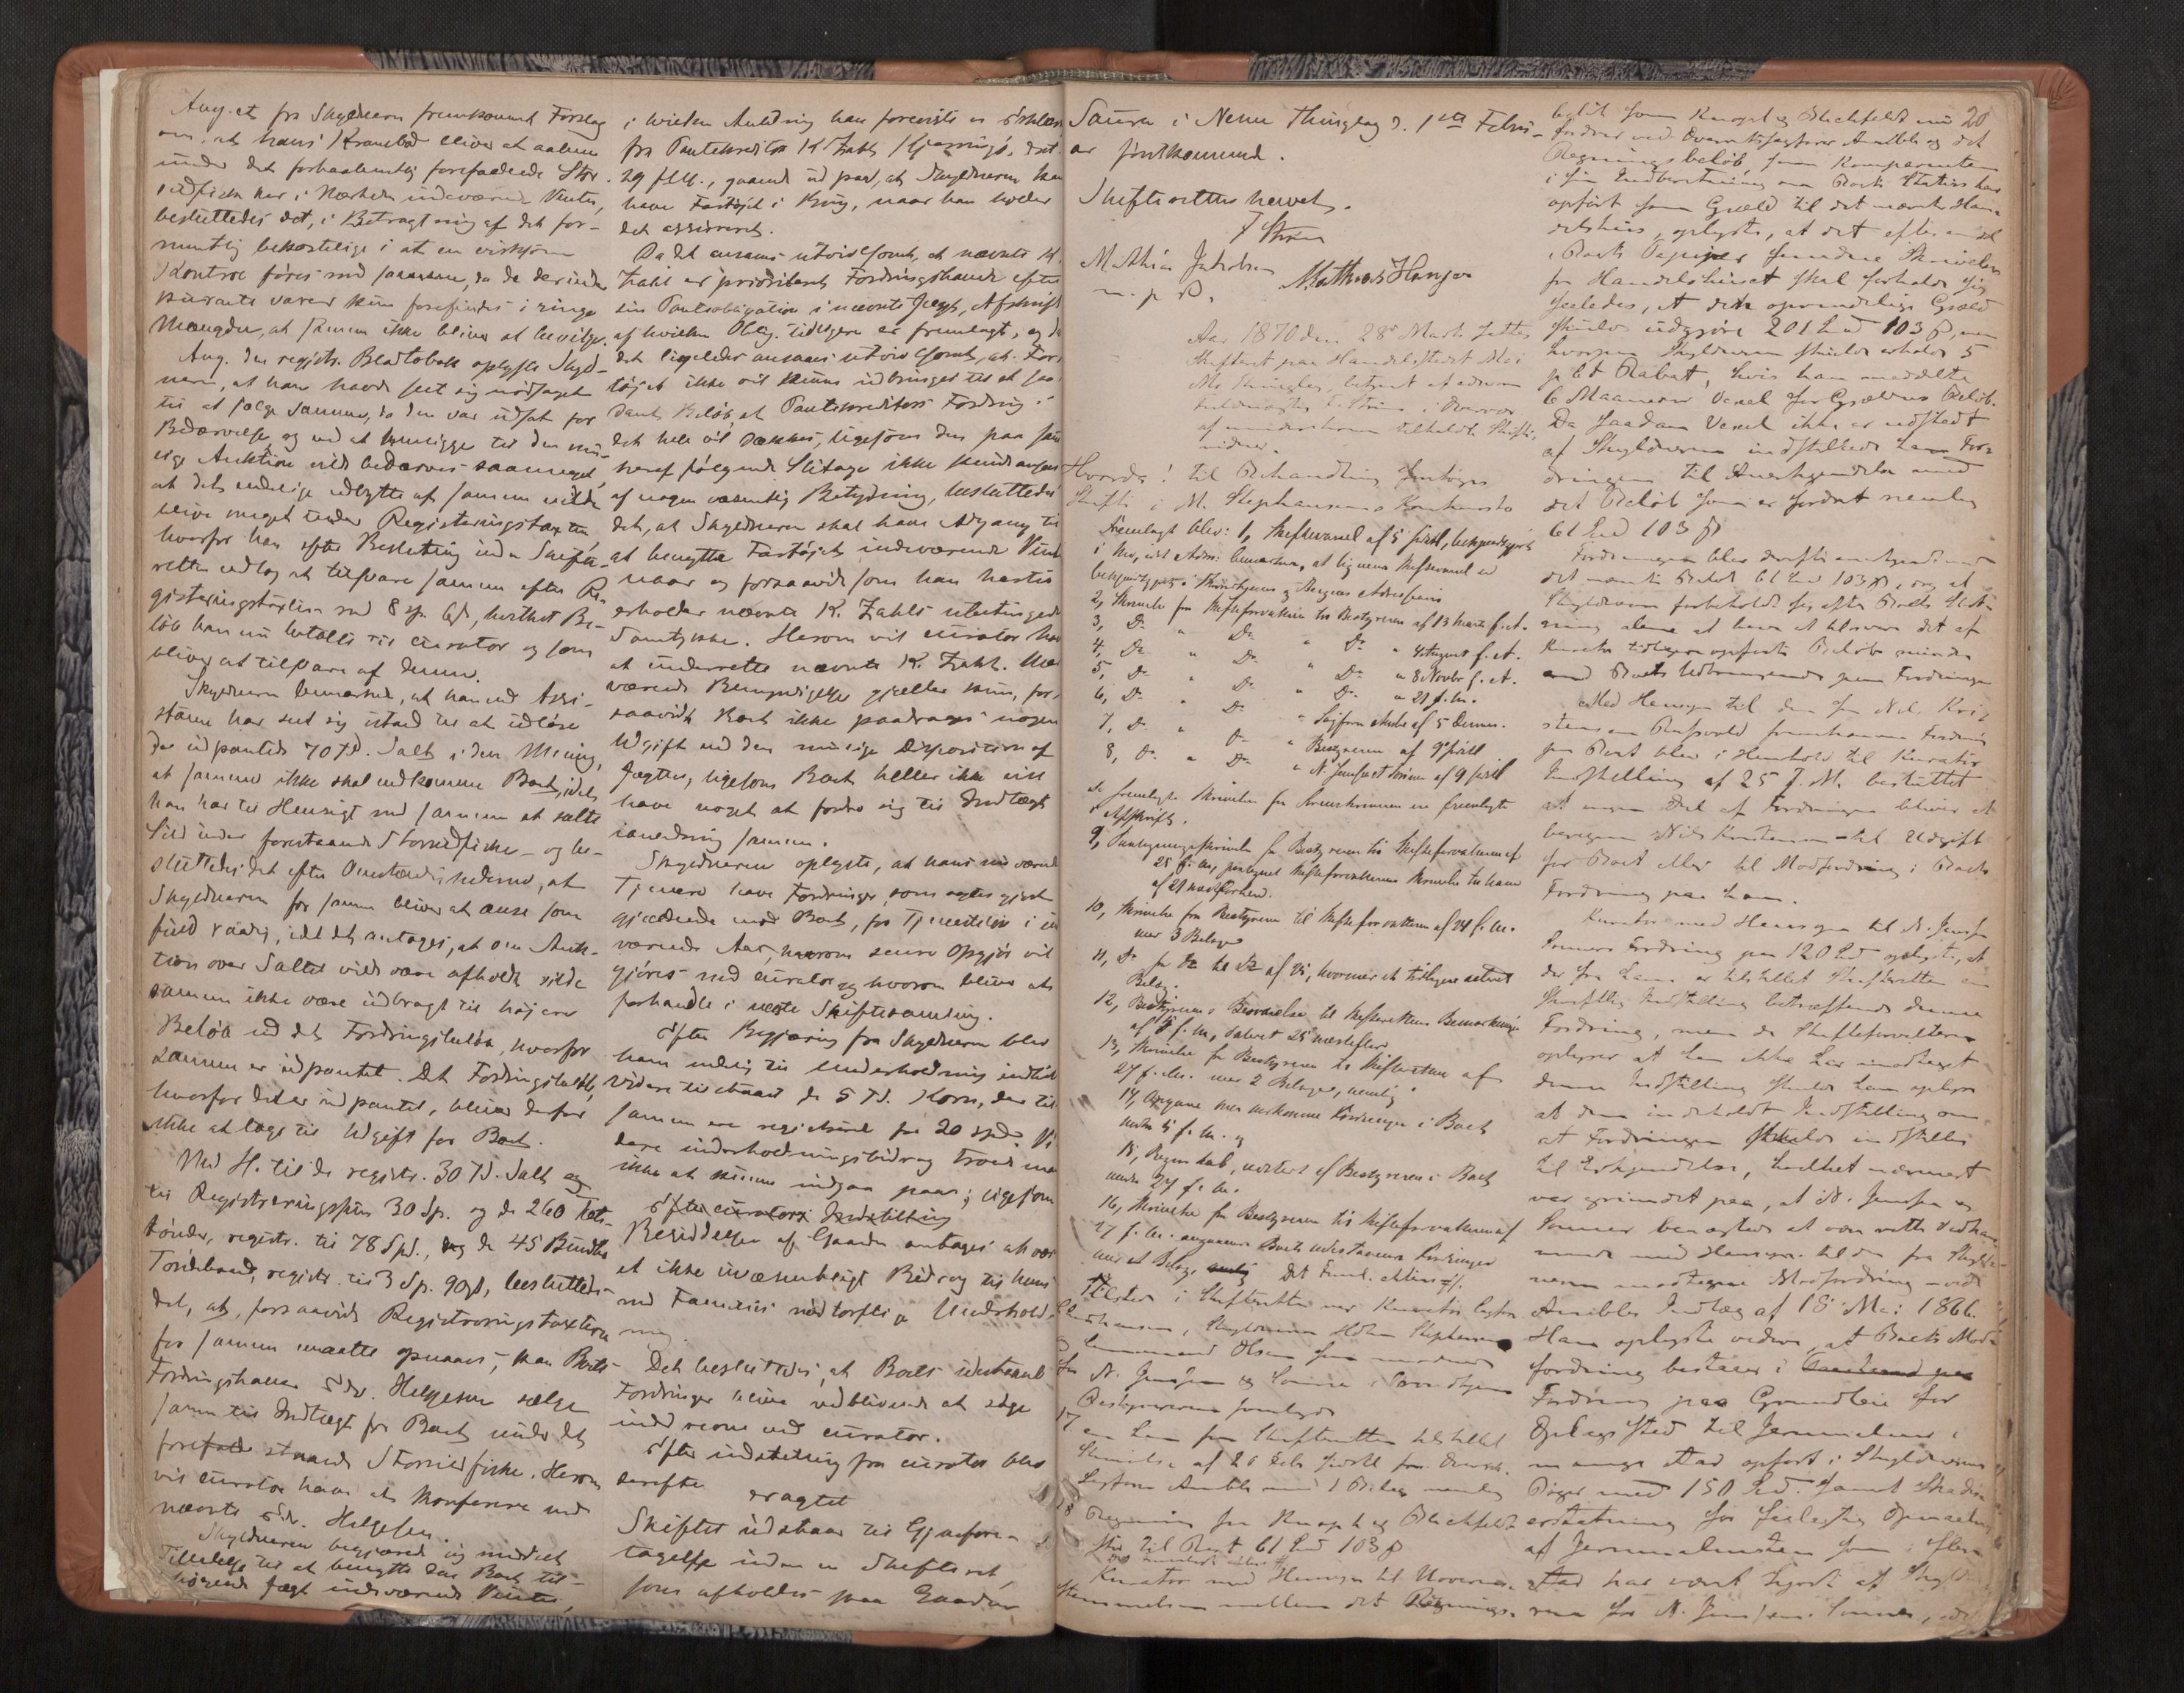 Ang. et fra Skyldneren fremkommet Forslag
om, at hans Krambod bliver at aabne
under det forhaabentlig forestaaende Stor-
sildfiske her i Nærheden indeværende Vinter,
besluttedes det, i Betragtning af det for-
mentlig bekostelige i at en virksom
Kontrol føres med samme, da de derinde
kurante varer kun forefindes i ringe
Mængde, at samme ikke bliver at bevilge.
Ang. den registr. oplyste Skyld-
neren, at han havde seet sig nødsaget
til at sælge samme, da den var udsat for
Bedærvelse og ved at henligge til den
Auktion vilde bedærves saameget,
at det endelige udbytte af samme vilde
blive meget under Registreringstaxten,
hvorfor han efter Beslutning inden Skifte-
retten vedtog at tilsvare samme efter Re-
gistreringstaxten med 8 sp. hvilket Be-
løb han nu betalte til curator og som
bliver at tilsvare af denne.
Skyldneren bemærkede, at han ved Assi-
stance har seet sig istand til at udløse
de udpantede 70 Td. Salt i den Mening,
at samme ikke skal vedkomme Boet, idet
han har til Hensigt med samme at salte
Sild under forestaaende Storsildfiske - og be-
sluttedes det efter Omstændighederne, at
Skyldneren for samme bliver at anse som
fuld raadig, idet det antages, at om Auk-
tion over Saltet vilde være afholdt vilde
samme ikke være udbragt til højere
Beløb end det Fordringsbeløb, hvorfor
samme er udpantet. Det Fordringsbeløb,
hvorfor det er udpantet, bliver derfor
ikke at tage til Udgift for Boet.
Med H. til de registr. 30 Td. Salt og
til Registreringssum 30 Sp. og de 260
tønder, registr. til 78 Spd., og de 45 Bundter
Tøndebaand, registr. til 3 Sp. 90 ß, besluttedes
det, at, forsaavidt Registreringstaxten
for samme maatte opnaaes, kan Boets
Fordringshaver Helgesen sælge
samme til Indtægt for Boet under det
forestaaende Storsildfiske. Herom
vil curator have at konferere med
nævnte Helgesen.
Skyldneren begjærede sig meddelt
Tilladelse til at benytte den Boet til-
hørende Jægt indeværende Vinter,
i hvilken Anledning han foreviste en Erklæring
fra Pantekreditor K. Zahl, Kjerringø, dat.
29 f. M., gaaende ud paa, at Skyldneren kan
have Fartøjet i Brug, naar han holder
det assureret.
Da det ansaaes utvivlsomt, at nævnte K.
Zahl er prioriteret Fordringshaver efter
sin Panteobligation i nævnte Jægt, Afskrift
af hvilken Oblg. tidligere er fremlagt, og da
det ligeledes ansaaes utvivlsomt, at Far-
tøjet ikke vil kunne udbringes til et saa-
dant Beløb, at Pantekreditors Fordring i
det hele vil dækkes, ligesom den paa
heraf følgende Slitage ikke kunde ansees
af nogen væsentlig Betydning, besluttedes
det, at Skyldneren skal have Adgang til
at benytte Fartøjet indeværende Vinter
naar og forsaavidt som han hertil
erholder nævnte K. Zahls ubetingede
Samtykke. Herom vil curator have
at underrette nævnte K. Zahl. Nær-
værende Bemyndigelse gjælder kun, for-
saavidt Boet ikke paadrages nogen
Udgift ved den Disposition af
Jægten, ligesom Boet heller ikke vil
have noget at fordre sig til Indtægt
i anledning samme.
Skyldneren oplyste, at hans nuværende
Tjenere have Fordringer, som agtes gjort
gjældende mod Boet, for Tjenestetid i inde-
værende Aar, hvorom senere Opgjør vil
gjøres med curator og hvorom bliver at
forhandle i næste Skiftesamling.
Efter Begjæring fra Skyldneren blev
ham endelig til Underholdning indtil
videre tilstaaet de 5 Td. Korn, der til-
sammen ere registreret for 20 spd. Vi-
dere underholdningsbidrag troede man
ikke at kunne indgaa paa; ligesom
Efter curators Indstilling
Besiddelsen af Gaarden antages at være
et ikke uvæsentligt Bidrag til hans
med Families nødtørftige Underhold-
ning.
Det besluttedes, at Boets udestaaende
Fordringer blive vedblivende at søge
inddrevne ved curator.
Efter indstilling fra curator blev
derefter
eragtet
Skiftet udstaar til Gjenfore-
tagelse inden en Skifteret,
som afholdes paa Gaarden
Saura i Nesne Thinglag d. 1ste Febru-
ar førstkommende.
Skifteretten hævet.
F Strøm
Mathias Jakobsen
m. p. P.
Mathias Hansen
Aar 1870 den 28de Marts sattes
Skifteret paa Handelsstedet
Thinglag, betjent af edsvoren
fuldmægtig F. Strøm i
af underskrevne tilkaldte Skifte-
vidner.
Hvorda: til Behandling foretoges
Skifte i M. Stephansens Konkursbo
Fremlagt blev: 1, Skiftevarsel af 5 bekjendtgjort
i bemærkes, at lignende Skiftevarsel er
bekjendtgjort i og Bergens Adresseavis
2, Skrivelse fra Skifteforvalteren til Bestyreren af 13 Marts f. A.
3, Do " Do " Do " 4 August f. A.
4, Do " Do " Do " 8 Novbr f. A.
5, Do " Do " Do " 21 f. M.
6, Do " Do " af 5 Dennes.
7, Do " Do " Bestyreren af 9
8, Do " Do " N. Jenssen & Sønner af 9
De fremlagte Skrivelser fra ere fremlagte
i Afskrift.
9, fra Bestyreren til Skifteforvalteren af
25 f. M., Skifteforvalterens Skrivelse til ham
af 21
10, Skrivelse fra Bestyreren til Skifteforvalteren af 24 f. M.
med 3 Bilage
11, Do fra Do til Do af hvormed et tidligere
Bilag.
12, Bestyrerens Besvarelse til Skifterettens Bemærkning
af f. M., dateret 25 næstefter
13, Skrivelse fra Bestyreren til Skifteretten af
27 f. M. med 2 Bilage, nemlig
14, Opgave over Fordringer i Boet
f. M. og
15, Regnskab, af Bestyreren i Boet
27 f. M.
16, Skrivelse fra Bestyreren til Skifteforvalteren af
27 f. M. angaaende Boets udestaaende Fordringer
med et Bilag
Tilstede i Skifteretten var Kurator
Skyldneren Stephansen
og Olsen som
for N. Jenssen & Sønner
Bestyreren fremlagde
17 en ham fra Skifteretten tilstillet
Skrivelse af 26 Febr.
med 1 Bilag nemlig
18 Regning fra Knoph & Blichfeldt
til Boet 61 Spd 103 ß
Kurator med Hensyn til Uoverens-
stemmelsen mellem det Regnings-
20
beløb som Knoph & Blichfeldt nu
fordrer ved Overretssagfører og det
Regningsbeløb, som Komparenten
i sin Indberetning om Boets Status har
opført som Gjæld til det nævnte Han-
delshuus, oplyste, at det efter en
i Boets Papirer Skrivelse
fra Handelshuset skal forholde sig
saaledes, at den oprindelige Gjæld
skulde udgjøre 201 Spd 103 ß, men
hvorpaa Skyldneren skulde erholde 5
pCt Rabat, hvis han meddelte
6 Maaneders Vexel for Gjældens Beløb.
Da saadan Vexel ikke er udstedt
af Skyldneren indstillede han For-
dringen til Anerkjendelse med
det Beløb som er fordret nemlig
61 Spd 103 ß
Fordringen blev derefter anerkjendt med
det nævnte Beløb 61 Spd 103 ß, og at
Skyldneren
Kurator tidligere opførte Beløb mindre
Med Hensyn til den fra Nils Kri-
stensen fremkomne Fordring
paa Boet blev i Henhold til Kurators
Indstilling af 25 f. M. besluttet
at ingen Del af Fordringen bliver at
Nils Kristensen - til Udgift
for Boet eller til Modfordring i Boets
Fordring paa ham.
Kurator med Hensyn til N. Jenssen &
Sønners Fordring paa 120 Spd oplyste, at
der fra ham er tilstillet Skifteretten en
Skriftlig Indstilling betræffende denne
Fordring, men da Skifteforvalteren
oplyser at han ikke har modtaget
denne Indstilling skulde han oplyse
at den indeholdt Indstilling om
at Fordringen skulde indstilles
til Erkjendelse, hvilket nærmest
var grundet paa, at N. Jenssen &
Sønner benægtede at være rette Vedkom-
mende med Hensyn til den fra Skyld-
neren Modfordring - vide
Indlæg af 18 Mai 1866.
Han oplyste videre, at Boets Mod-
fordring bestaaer i
Fordring paa Grundleie for
Oplagssted til Jernmalmen i
mange Aar opført i Skyldnerens
Bøger med 150 Spd. samt Skades-
erstatning for
af Jernmalmsten som i flere
Aar har været
for N. Jenssen & Sønner,